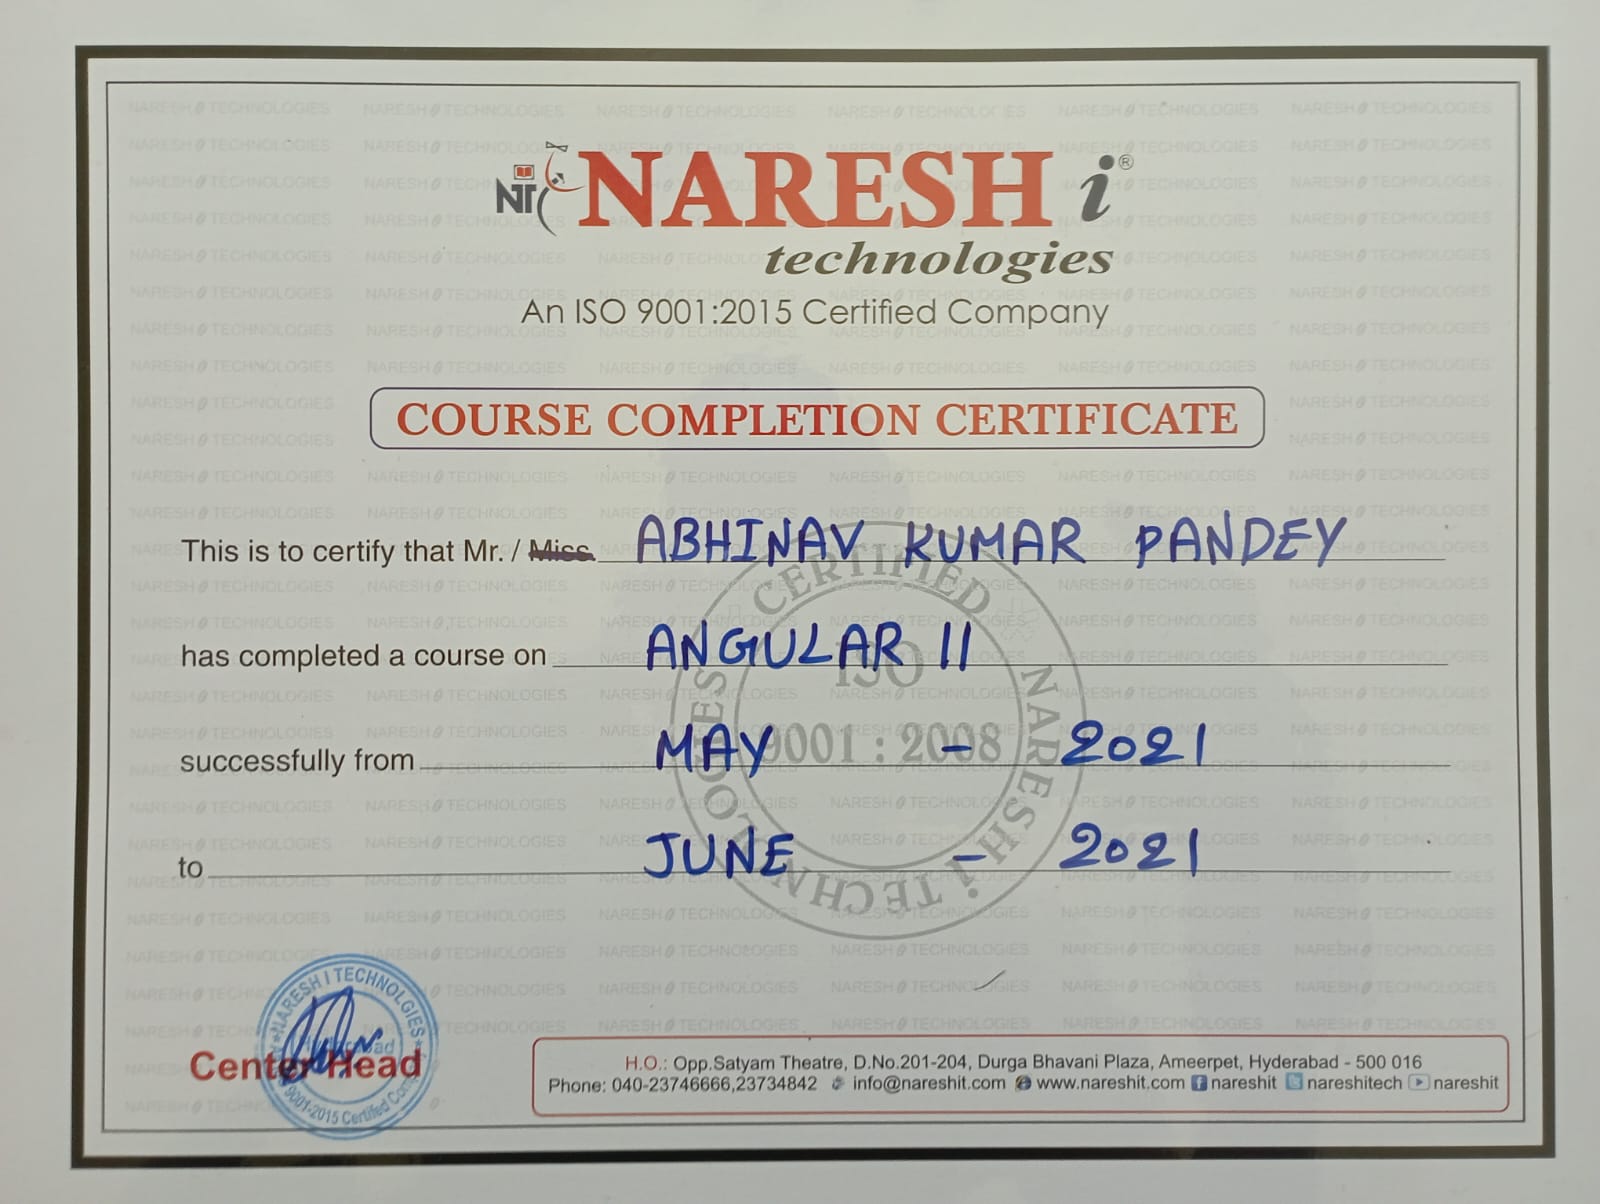 NT NARESH i ®
technologies
An ISO 9001:2015 Certified Company
COURSE COMPLETION CERTIFICATE
This is to certify that Mr. / Miss. ABHINAV KUMAR PANDEY
has completed a course on ANGULAR 11
successfully from MAY - 2021
to JUNE - 2021
CERTIFIED NARESH i TECHNOLOGIES
ISO
9001 : 2008
NARESH I TECHNOLGIES
9001-2015 Certified Com
Center Head
H.O.: Opp.Satyam Theatre, D.No.201-204, Durga Bhavani Plaza, Ameerpet, Hyderabad - 500 016
Phone: 040-23746666,23734842 info@nareshit.com www.nareshit.com nareshit nareshitech nareshit
NARESH i TECHNOLOGIES